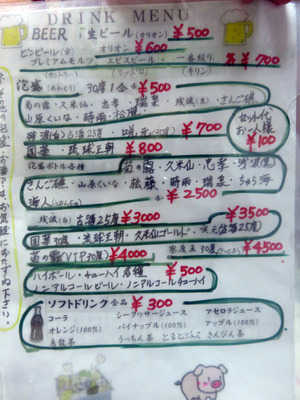 DRINK MENU
BEER 生ビール(オリオン) ¥500
ビンビール(中) オリオン ¥600
プレミアムモルツ エビスビール 一番絞り 各¥700
(サントリー) (サッポロ) (キリン)
泡盛(あわもり) 30度1合 ¥500
菊の露・久米仙・忠孝・瑞泉・残波(白)・さんご礁
山原くいな・時雨・松藤
セット代
お一人様
¥100
残波(白)古酒25度・咲元(30度) ¥700
国華・琉球王朝 ¥800
泡盛ボトル各種
菊の露・久米仙・忠孝・残波(白)
さんご礁・山原くいな・松藤・時雨・瑞泉・ちゅら海
海人 ¥2500
残波(白)古酒25度 ¥3000
¥3500
国華30度・琉球王朝・久米仙ゴールド・咲元古酒25度
菊の露(VIP30度) ¥4000
30度 ¥4500
ハイボール・チューハイ各種 ¥500
ノンアルコールビール・ノンアルコールチューハイ
ソフトドリンク 全品 ¥300
コーラ シークワサージュース アセロラジュース
オレンジ(100%) パイナップル(100%) アップル(100%)
烏龍茶 うっちん茶 とまとジュース さんぴん茶